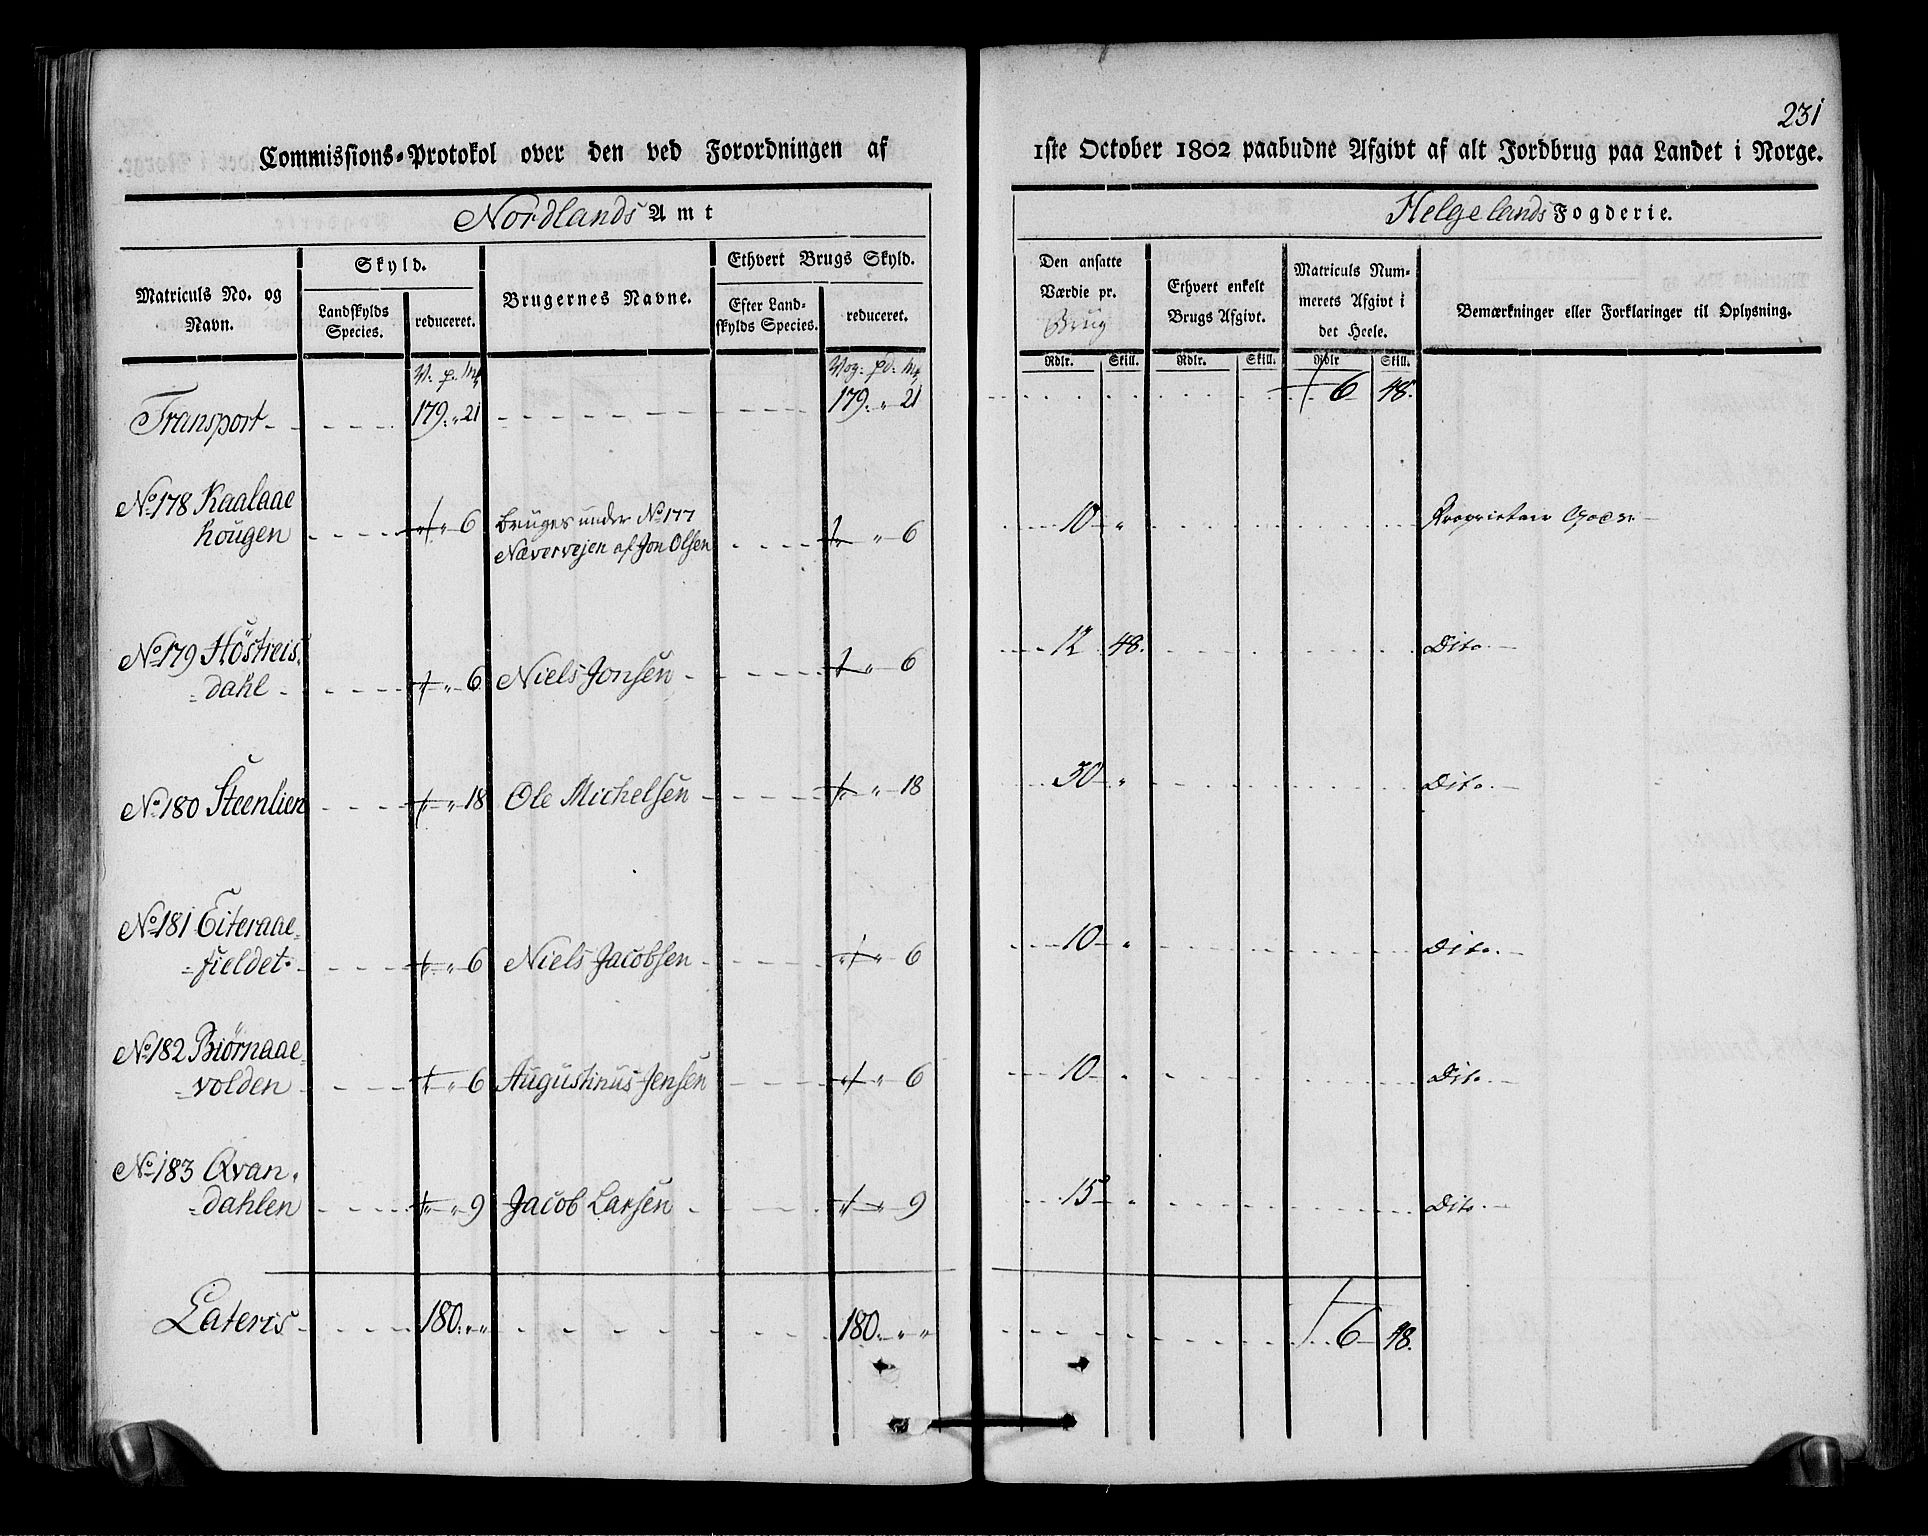 231
Commissions-Protokol over den ved Forordningen af 1ste October 1802 paabudne Afgivt af alt Jordbrug paa Landet i Norge.
Nordlands Amt
Helgelands Fogderie.
Matriculs No. og Navn.
Skyld.
Landskylds Species.
reduceret.
Brugernes Navne.
Ethvert Brugs Skyld.
Efter Landskylds Species.
reduceret.
Den ansatte Værdie pr. Brug
Ethvert enkelt Brugs Afgivt.
Matriculs Nummerets Afgivt i det Heele.
Bemærkninger eller Forklaringer til Oplysning.
Rdlr. Skill. Rdlr. Skill. Rdlr Skill.
V: p. Mk Vog: pd: Mk
Transport 179. " 21 179. " 21 6 48.
No 178 Kaalaae
hougen " 6 bruges under No 177
Nævervejen af Jon Olsen " 6 10 " Proprietair Gods
No 179 Höstreis
dahl " 6 Niels Jonsen " 6 12 48. Dito
No 180 Steenlien " 18 Ole Michelsen " 18 30 " Dito
No 181 Eiteraae
fieldet " 6 Niels Jacobsen " 6 10 " Dito
No 182 Biørnaae
volden " 6 Augustinus Jensen " 6 10 " Dito
No 183 Qvan
dahlen " 9 Jacob Larsen " 9 15 " Dito
Lateris 180. " " 180. " " 6 48.